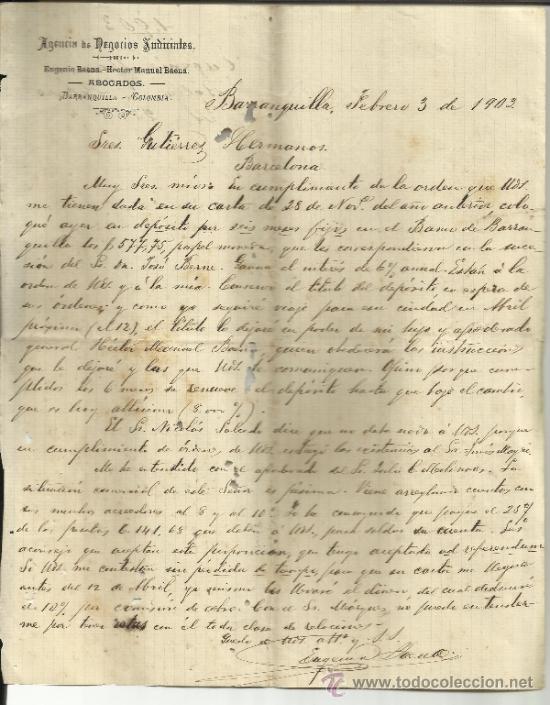 Agencia de Negocios Judiciales.
Eugenio Baena.-Hector Manuel Baena.
ABOGADOS.
BARRANQUILLA - COLOMBIA.
Barranquilla, Febrero 3 de 1902
Sres. Gutiérrez Hermanos
Barcelona
Muy Sres. mios: En cumplimiento de la orden que Uds.
me tienen dada en su carta de 28 de Novbre. del año anterior colo-
qué ayer en depósito por seis meses fijos en el Banco de Barran-
quilla los $ 577,75, papel moneda, que les correspondieron en la suce-
sión del Sr. Dn. José Berne. Ganan el interés de 6% anual. Están á la
orden de Uds y á la mia. Conservo el titulo del depósito en espera de
sus órdenes; y como yo seguiré viaje para esa ciudad en Abril
próximo (el 12), el titulo lo dejaré en poder de mi hijo y apoderado
general Héctor Manuel Baena, quien obedecerá las instrucciones
que le dejare y las que Uds le comuniquen. Opino por que cum-
plidos los 6 meses se renueve el depósito hasta que baje el cambio,
que es hoy altísimo
El Sr. Nicolás Salcedo dice que no debe nada á Uds. porque
en cumplimiento de órdenes de Uds. entregó las existencias al Sr.
Me he entendido con el apoderado del Sr. Julio C.
situación comercial de este Señor es pésima. Viene arreglando cuentas con
sus muchos acreedores al 8 y al 10%. he conseguido que pague el 25%
de las pesetas 6.141,68 que debe á Uds. para saldar su cuenta. Les
aconsejo que acepten esta proporcion, que tengo aceptada ad referendum.
Si Uds. me contestan sin pérdida de tiempo, para que su carta me llegue
antes del 12 de Abril, yo mismo les llevaré el dinero, del cual deduciré
el 10% por comisión de cobro. Con el Sr. Márquez no puedo entender-
me por tener rotas con él toda clase de relaciones.
Quedo de Uds. atto. y S. S.
Eugenio Baena
todocoleccion
www.todocoleccion.net